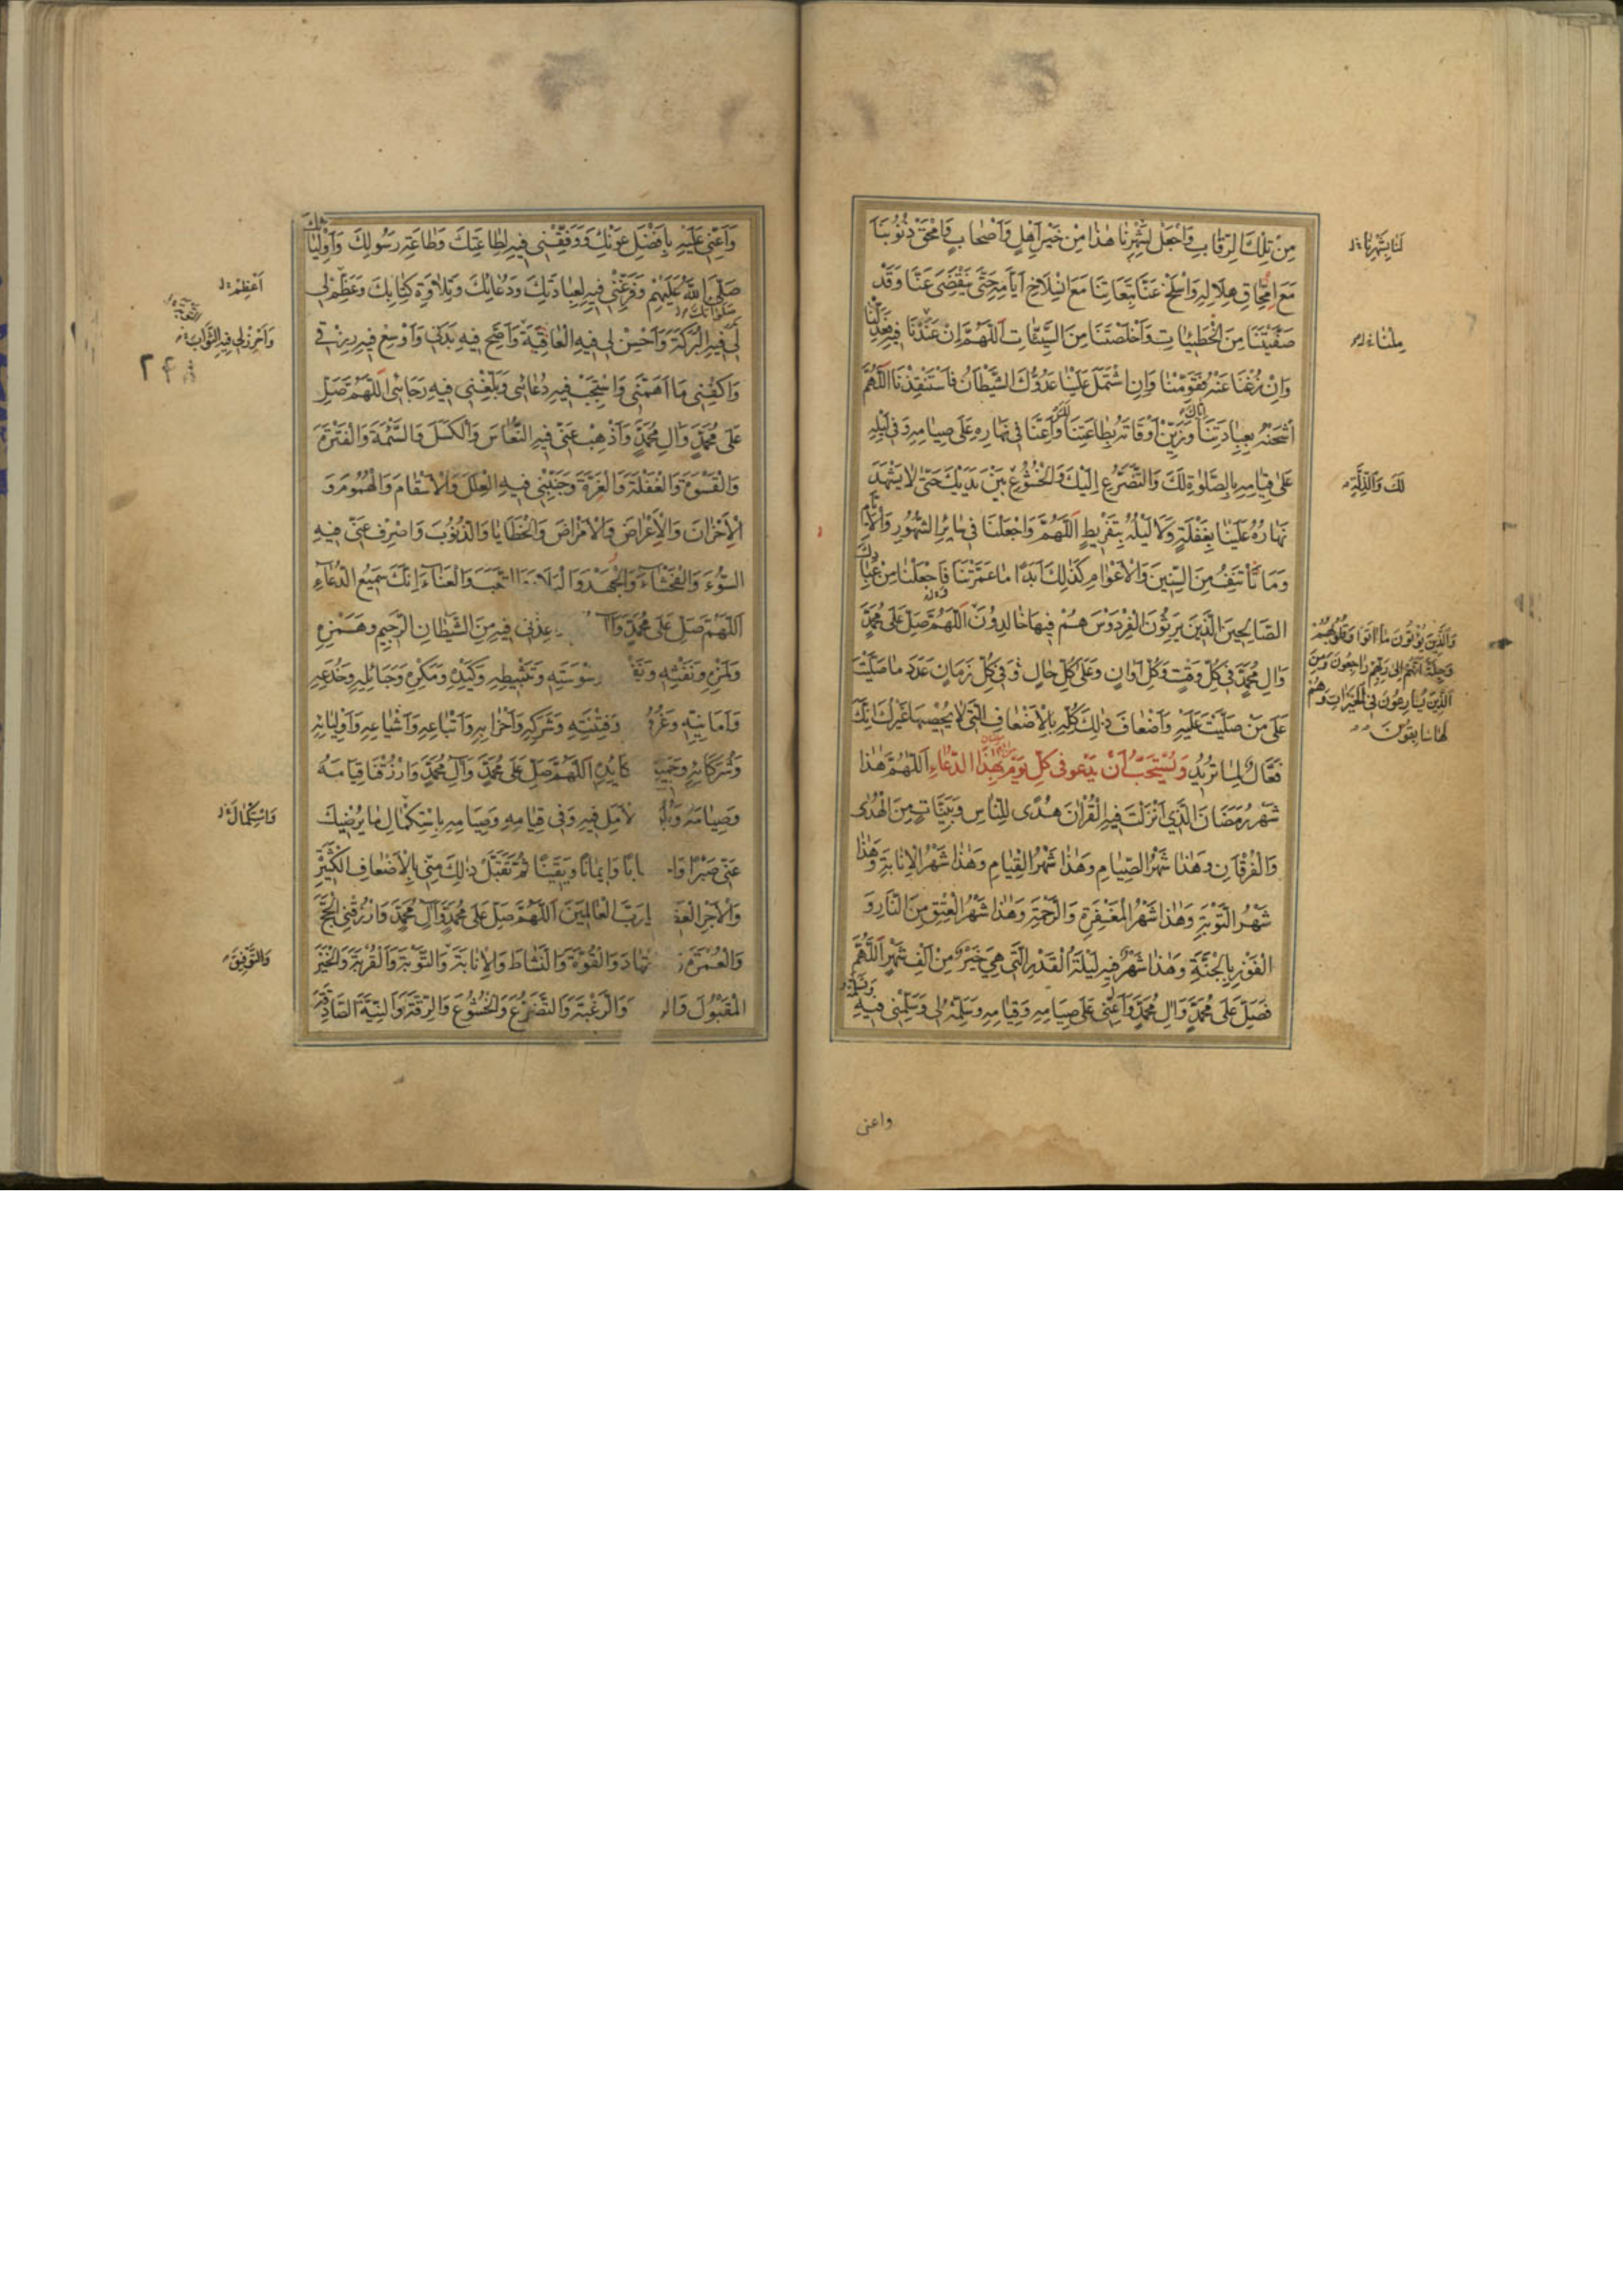 مِنْ تِلْكَ الرِّقَابِ وَاجْعَلْ لِشَهْرِنَا هٰذَا مِنْ خَيْرِ اَهْلٍ وَاَصْحَابٍ وَامْحَقْ ذُنُوبَنَا
لَنَا بِشَهْرِنَا
مَعَ امِّحَاقِ هِلَالِهِ وَاسْلَخْ عَنَّا تَبِعَاتِنَا مَعَ انْسِلَاخِ اَيَّامِهِ حَتّٰى يَنْقَضِيَ عَنَّا وَقَدْ
صَفَّيْتَنَا مِنَ الْخَطِيئَاتِ وَاَخْلَصْتَنَا مِنَ السَّيِّئَاتِ اَللّٰهُمَّ اِنْ عَنَدْنَا فِيهِ فَعَدِّلْنَا
مِلْنَا
وَاِنْ زُغْنَا عَنْهُ فَقَوِّمْنَا وَاِنِ اشْتَمَلَ عَلَيْنَا عَدُوُّكَ الشَّيْطَانُ فَاسْتَنْقِذْنَا اَللّٰهُمَّ
اشْحَنْهُ بِعِبَادَتِنَا وَزَيِّنْ اَوْقَاتَهُ بِطَاعَتِنَا وَاَعِنَّا فِي نَهَارِهِ عَلَى صِيَامِهِ وَفِي لَيْلِهِ
اِيَّاكَ
لَكَ
عَلَى قِيَامِهِ بِالصَّلٰوةِ لَكَ وَالتَّضَرُّعِ اِلَيْكَ وَالْخُشُوعِ بَيْنَ يَدَيْكَ حَتّٰى لَا يَشْهَدَ
لَكَ وَالذِّلَّةِ
نَهَارُهُ عَلَيْنَا بِغَفْلَةٍ وَلَا لَيْلُهُ بِتَفْرِيطٍ اَللّٰهُمَّ وَاجْعَلْنَا فِي سَائِرِ الشُّهُورِ وَالْاَيَّامِ
وَمَا نَأْتَنِفُ مِنَ السِّنِينَ وَالْاَعْوَامِ كَذٰلِكَ اَبَدًا مَا عَمَّرْتَنَا فَاجْعَلْنَا مِنْ عِبَادِكَ
الصَّالِحِينَ الَّذِينَ يَرِثُونَ الْفِرْدَوْسَ هُمْ فِيهَا خَالِدُونَ اَللّٰهُمَّ صَلِّ عَلَى مُحَمَّدٍ
وَالَّذِينَ يُؤْتُونَ مَا اٰتَوْا وَقُلُوبُهُمْ
وَجِلَةٌ اَنَّهُمْ اِلَى رَبِّهِمْ رَاجِعُونَ وَمِنَ
الَّذِينَ يُسَارِعُونَ فِي الْخَيْرَاتِ وَهُمْ
لَهَا سَابِقُونَ
وَاٰلِ مُحَمَّدٍ فِي كُلِّ وَقْتٍ وَكُلِّ اَوَانٍ وَعَلَى كُلِّ حَالٍ وَفِي كُلِّ زَمَانٍ عَدَدَ مَا صَلَّيْتَ
عَلَى مَنْ صَلَّيْتَ عَلَيْهِ وَاَضْعَافَ ذٰلِكَ كُلِّهِ بِالْاَضْعَافِ الَّتِي لَا يُحْصِيهَا غَيْرُكَ اِنَّكَ
فَعَّالٌ لِمَا تُرِيدُ وَيُسْتَحَبُّ اَنْ يَدْعُو فِي كُلِّ يَوْمٍ بِهٰذَا الدُّعَاءِ اَللّٰهُمَّ هٰذَا
شَهْرُ رَمَضَانَ الَّذِي اَنْزَلْتَ فِيهِ الْقُرْاٰنَ هُدًى لِلنَّاسِ وَبَيِّنَاتٍ مِنَ الْهُدٰى
وَالْفُرْقَانِ وَهٰذَا شَهْرُ الصِّيَامِ وَهٰذَا شَهْرُ الْقِيَامِ وَهٰذَا شَهْرُ الْاِنَابَةِ وَهٰذَا
شَهْرُ التَّوْبَةِ وَهٰذَا شَهْرُ الْمَغْفِرَةِ وَالرَّحْمَةِ وَهٰذَا شَهْرُ الْعِتْقِ مِنَ النَّارِ وَ
الْفَوْزِ بِالْجَنَّةِ وَهٰذَا شَهْرٌ فِيهِ لَيْلَةُ الْقَدْرِ الَّتِي هِيَ خَيْرٌ مِنْ اَلْفِ شَهْرٍ اَللّٰهُمَّ
فَصَلِّ عَلَى مُحَمَّدٍ وَاٰلِ مُحَمَّدٍ وَاَعِنِّي عَلَى صِيَامِهِ وَقِيَامِهِ وَسَلِّمْهُ لِي وَسَلِّمْنِي فِيهِ
واعنى
وَاَعِنِّي عَلَيْهِ بِاَفْضَلِ عَوْنِكَ وَوَفِّقْنِي فِيهِ لِطَاعَتِكَ وَطَاعَةِ رَسُولِكَ وَاَوْلِيَائِكَ
صَلَّى اللّٰهُ عَلَيْهِمْ وَفَرِّغْنِي فِيهِ لِعِبَادَتِكَ وَدُعَائِكَ وَتِلَاوَةِ كِتَابِكَ وَعَظِّمْ لِي
اَعْظِمْ
لِي فِيهِ الْبَرَكَةَ وَاَحْسِنْ لِي فِيهِ الْعَافِيَةَ وَاَصِحَّ فِيهِ بَدَنِي وَاَوْسِعْ فِيهِ رِزْقِي
وَاَحْرِزْ لِي فِيهِ الثَّوَابَ
وَاكْفِنِي مَا اَهَمَّنِي وَاسْتَجِبْ فِيهِ دُعَائِي وَبَلِّغْنِي فِيهِ رَجَائِي اَللّٰهُمَّ صَلِّ
عَلَى مُحَمَّدٍ وَاٰلِ مُحَمَّدٍ وَاَذْهِبْ عَنِّي فِيهِ النُّعَاسَ وَالْكَسَلَ وَالسَّأْمَةَ وَالْفَتْرَةَ
وَالْقَسْوَةَ وَالْغَفْلَةَ وَالْغِرَّةَ وَجَنِّبْنِي فِيهِ الْعِلَلَ وَالْاَسْقَامَ وَالْهُمُومَ وَ
الْاَحْزَانَ وَالْاَعْرَاضَ وَالْاَمْرَاضَ وَالْخَطَايَا وَالذُّنُوبَ وَاصْرِفْ عَنِّي فِيهِ
السُّوءَ وَالْفَحْشَاءَ وَالْجَهْدَ وَالْبَلَاءَ وَالتَّعَبَ وَالْعَنَاءَ اِنَّكَ سَمِيعُ الدُّعَاءِ
اَللّٰهُمَّ صَلِّ عَلَى مُحَمَّدٍ عِذْنِي فِيهِ مِنَ الشَّيْطَانِ الرَّجِيمِ وَهَمْزِهِ
وَلَمْزِهِ وَنَفْثِهِ وَسْوَسَتِهِ وَتَثْبِيطِهِ وَكَيْدِهِ وَمَكْرِهِ وَحَبَائِلِهِ وَخُدَعِهِ
وَاَمَانِيِّهِ وَفِتْنَتِهِ وَشَرَكِهِ وَاَحْزَابِهِ وَاَتْبَاعِهِ وَاَشْيَاعِهِ وَاَوْلِيَائِهِ
وَشُرَكَائِهِ وَجَمِيعِ كَايِدِهِ اَللّٰهُمَّ صَلِّ عَلَى مُحَمَّدٍ وَاٰلِ مُحَمَّدٍ وَارْزُقْنَا قِيَامَهُ
وَصِيَامَهُ الْاَمَلِ فِيهِ وَفِي قِيَامِهِ وَصِيَامِهِ بِاسْتِكْمَالِ مَا يُرْضِيكَ
وَاسْتِكْمَالَ
عَنِّي صَبْرًا وَاِيمَانًا وَيَقِينًا ثُمَّ تَقَبَّلْ ذٰلِكَ مِنِّي بِالْاَضْعَافِ الْكَثِيرَةِ
وَالْاَجْرِ يَا رَبَّ الْعَالَمِينَ اَللّٰهُمَّ صَلِّ عَلَى مُحَمَّدٍ وَاٰلِ مُحَمَّدٍ وَارْزُقْنِي الْحَجَّ
وَالْعُمْرَةَ وَالْقُوَّةَ وَالنَّشَاطَ وَالْاِنَابَةَ وَالتَّوْبَةَ وَالْقُرْبَةَ وَالْخَيْرَ
وَالتَّوْفِيقَ
الْمَقْبُولَ وَالرَّغْبَةَ وَالتَّضَرُّعَ وَالْخُشُوعَ وَالرِّقَّةَ وَالنِّيَّةَ الصَّادِقَةَ